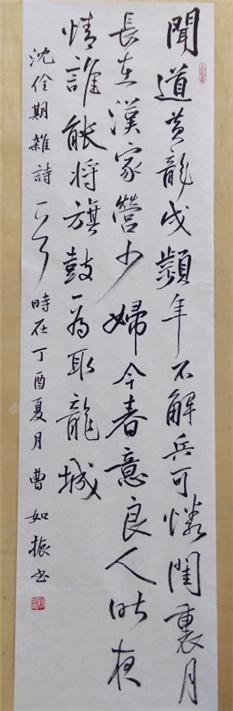 聞道黄龍戍頻年不解兵可憐閨裏月
長在漢家營少婦今春意良人昨夜
情誰能將旗鼓一為取龍城
沈佺期雜詩一首時在丁酉夏月曹如振书